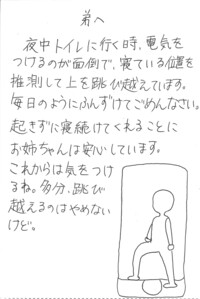 弟へ
夜中トイレに行く時、電気を
つけるのが面倒で、寝ている位置を
推測して上を跳び越えています。
毎日のようにふんずけてごめんなさい。
起きずに寝続けてくれることに
お姉ちゃんは安心しています。
これからは気をつけ
るね。多分、跳び
越えるのはやめない
けど。